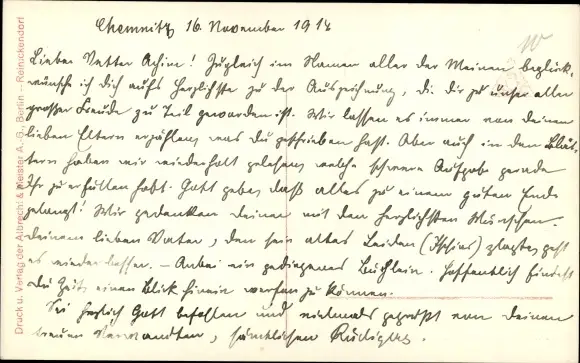 Chemnitz 16. November 1914
Lieber Vetter Achim! Zugleich im Namen aller der Meinen beglück-
wünsche ich dich aufs herzlichste zu der Auszeichnung, die dir zu unser aller
großer Freude zu Teil geworden ist. Wir lassen es immer von deinen
lieben Eltern erzählen, was du geschrieben hast. Aber auch in den Blät-
tern haben wir wiederholt gelesen, welche schwere Aufgabe gerade
Ihr zu erfüllen habt. Gott gebe, daß alles zu einem guten Ende
gelangt! Wir gedenken deiner mit den herzlichsten Wünschen.
deinem lieben Vater, den sein altes Leiden (Ischias) plagte, geht
es wieder besser. – Anbei ein gediegenes Büchlein. Hoffentlich findest
du Zeit, einen Blick hinein werfen zu können.
Sei herzlich Gott befohlen und vielmals gegrüßt von deinen
treuen Verwandten, sämtlichen
Druck u. Verlag der Albrecht & Meister A.-G., Berlin – Reinickendorf